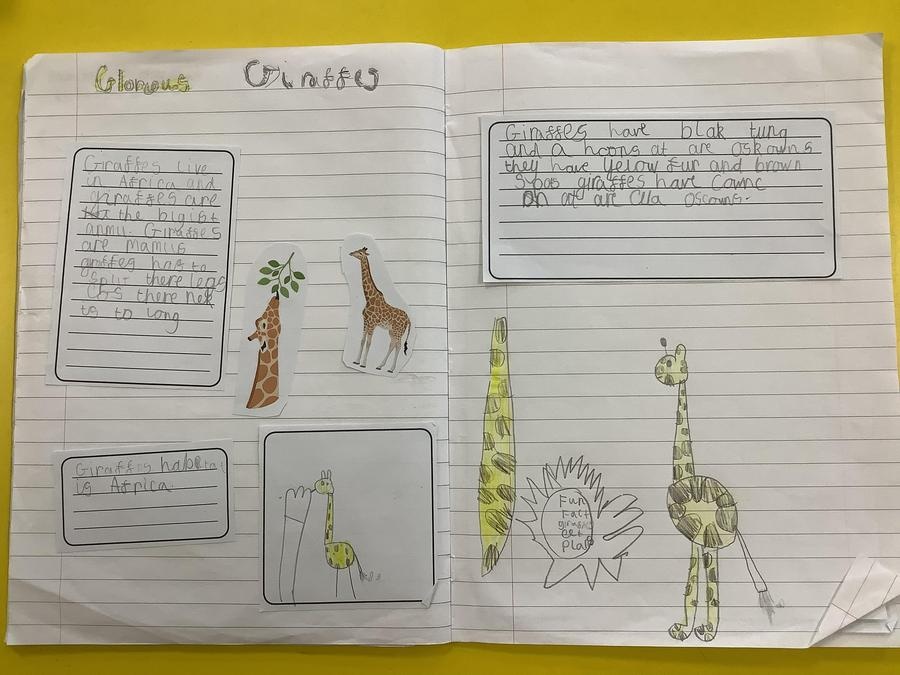 Glorous Giraffes
Giraffes live
in Africa and
giraffes are
the bigist
anmu. Giraffes
are mamus
giraffes has to
split there legs
cos there nek
is to long
Giraffes habetat
is Africa.
Giraffes have blak tung
and a hoons at are oskowns
they have yelow fur and brown
spos giraffes have
at are clla oscowns.
Fun
Fact
giraffes
eet
plas